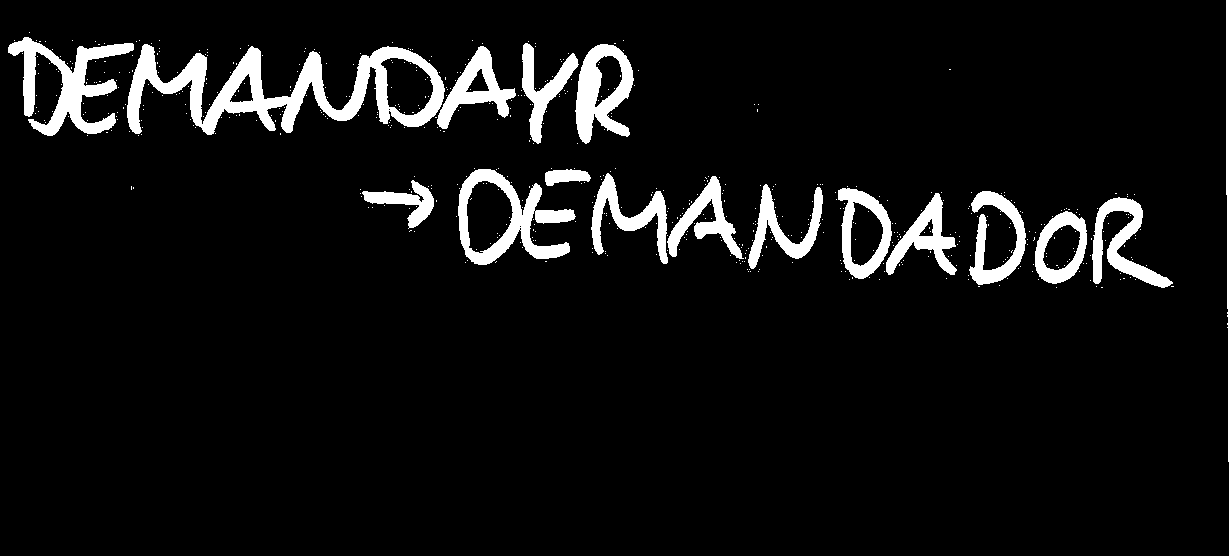 DEMANDAYR
→ DEMANDADOR